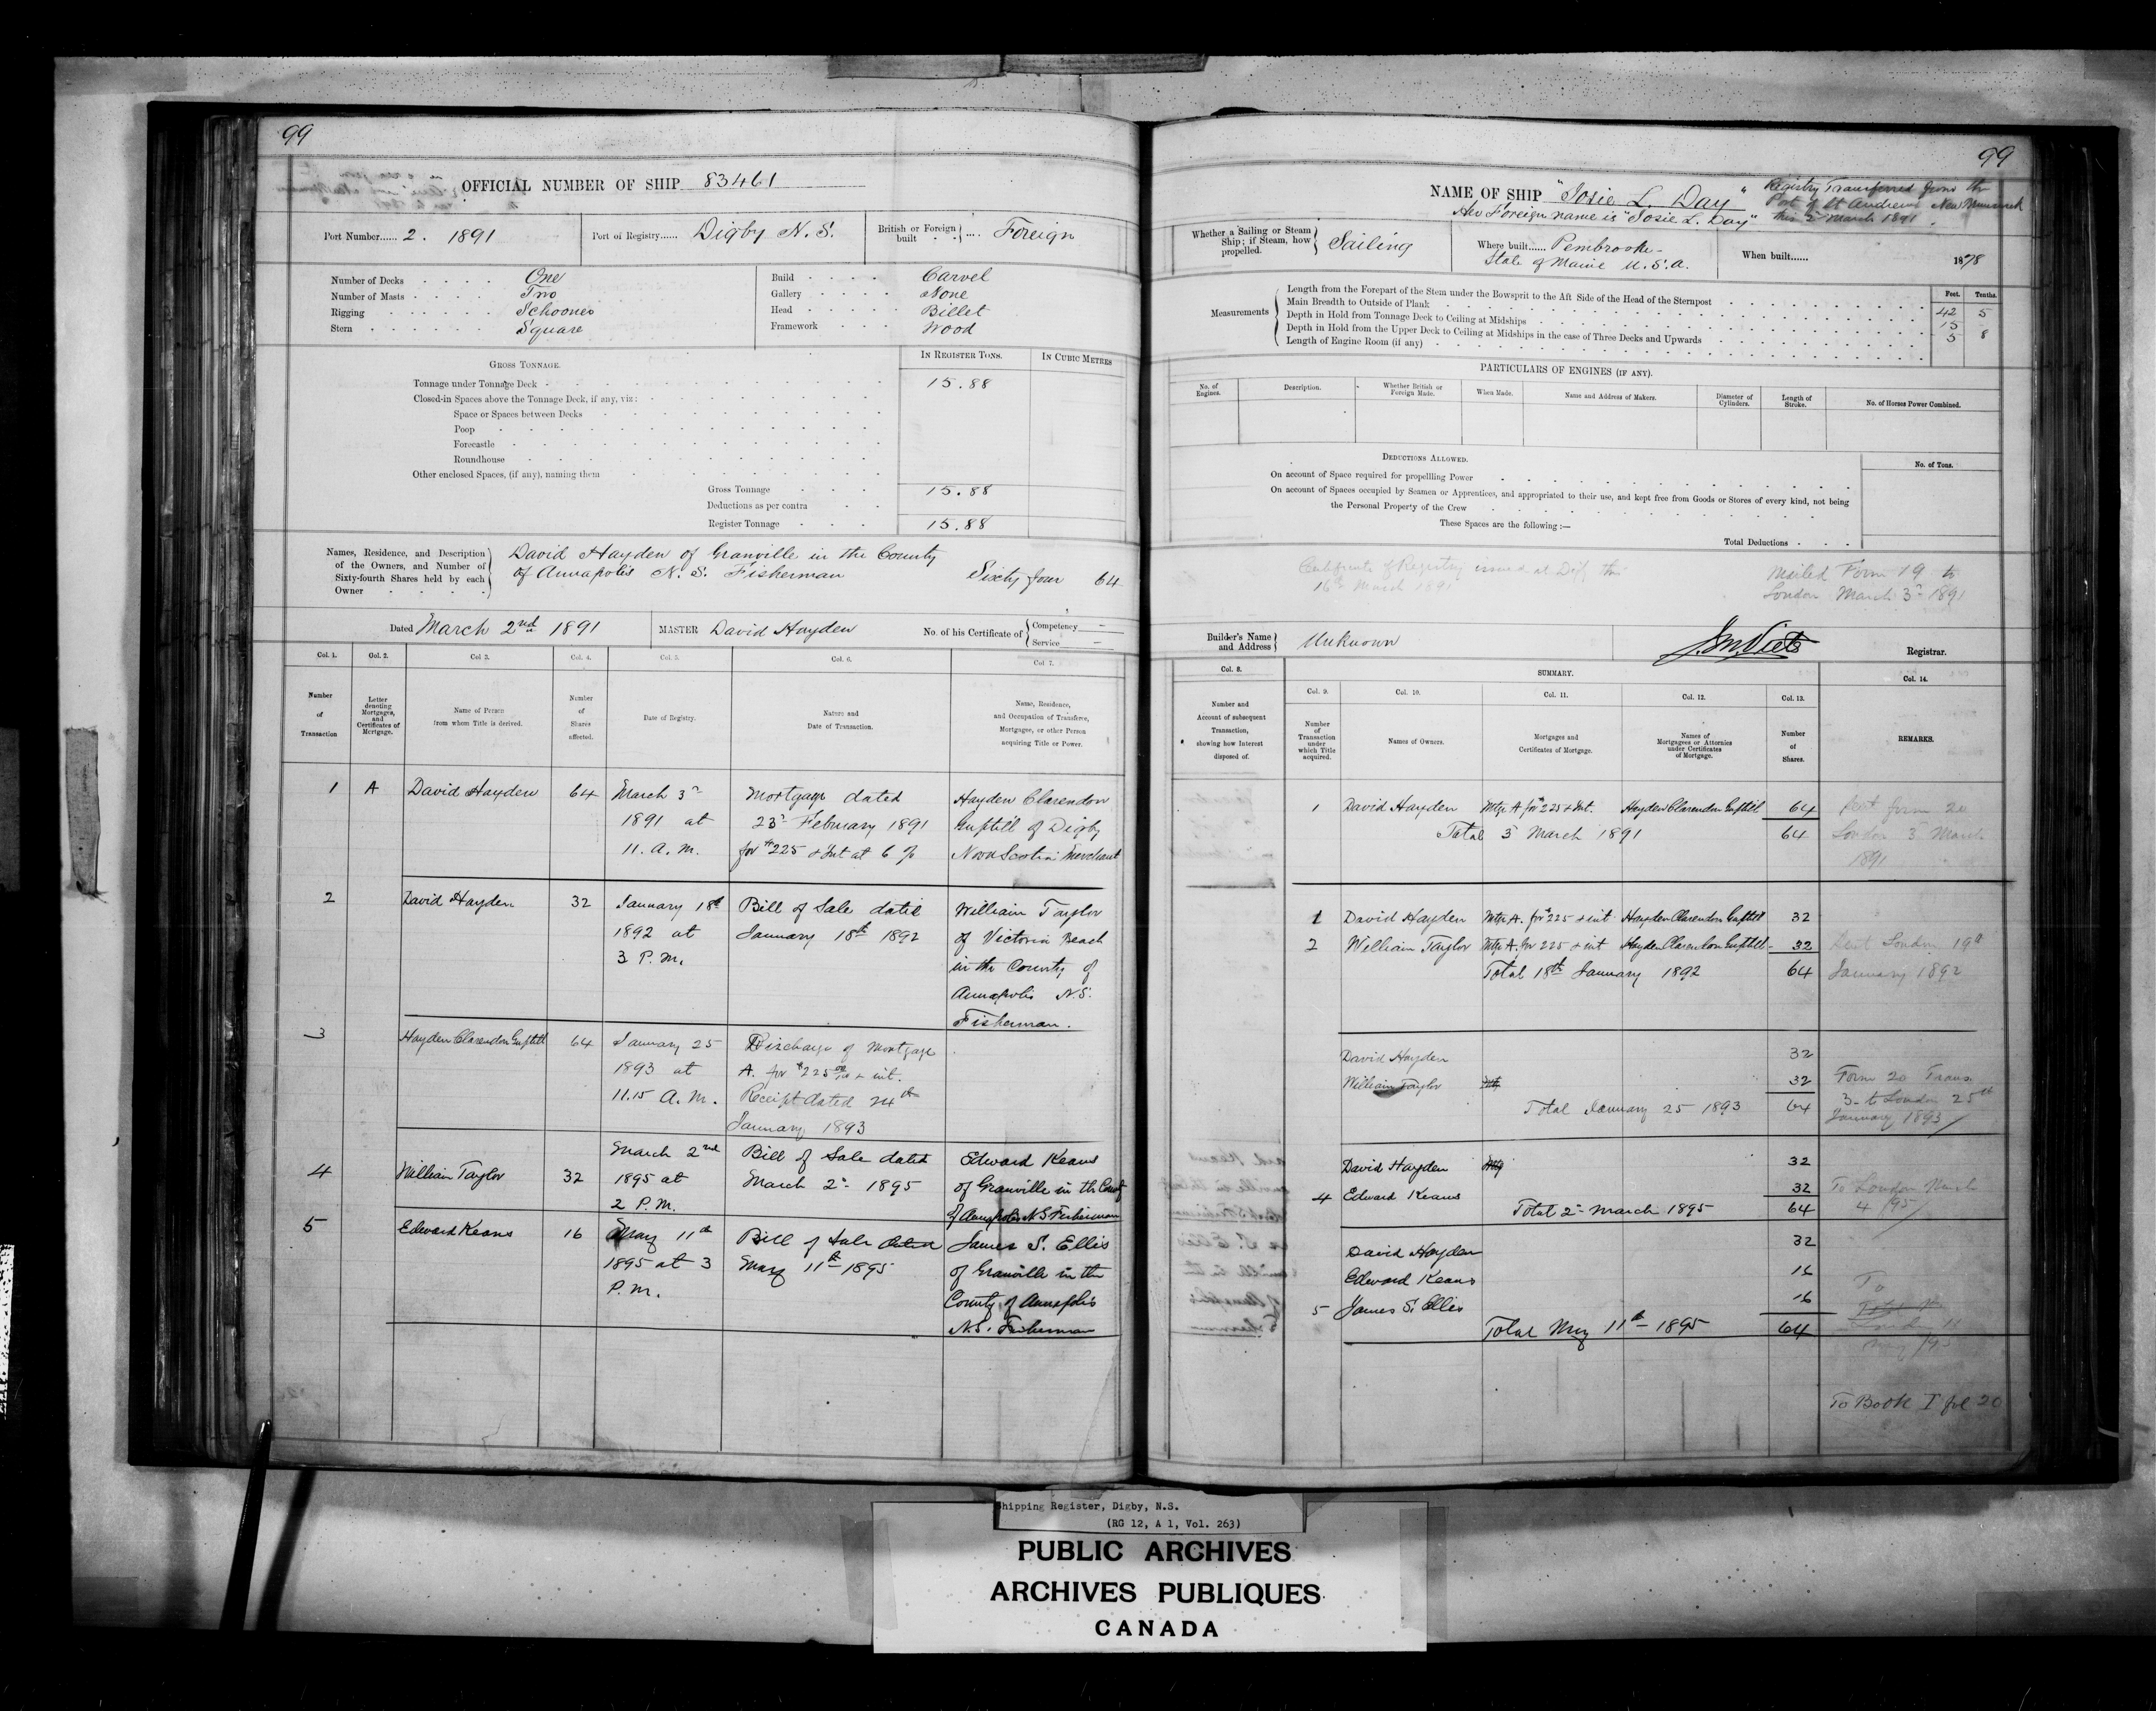 99
OFFICIAL NUMBER OF SHIP 83461
Port Number...... 2. 1891
Port of Registry...... Digby N. S.
British or Foreign built ... Foreign
Number of Decks One
Number of Masts Two
Rigging Schooner
Stern Square
Build Carvel
Gallery None
Head Billet
Framework Wood
GROSS TONNAGE.
IN REGISTER TONS.
IN CUBIC METRES
Tonnage under Tonnage Deck - 15.88
Closed-in Spaces above the Tonnage Deck, if any, viz:
Space or Spaces between Decks
Poop
Forecastle
Roundhouse
Other enclosed Spaces, (if any), naming them
Gross Tonnage 15.88
Deductions as per contra
Register Tonnage 15.88
Names, Residence, and Description of the Owners, and Number of Sixty-fourth Shares held by each Owner
David Hayden of Granville in the County
of Annapolis N. S. Fisherman Sixty four 64
Dated March 2nd 1891
MASTER David Hayden
No. of his Certificate of Competency — Service —
Col. 1. Col. 2. Col 3. Col. 4. Col. 5. Col. 6. Col. 7.
Number of Transaction
Letter denoting Mortgages, and Certificates of Mortgage.
Name of Person from whom Title is derived.
Number of Shares affected.
Date of Registry.
Nature and Date of Transaction.
Name, Residence, and Occupation of Transferee, Mortgagee, or other Person acquiring Title or Power.
1 A David Hayden 64 March 3rd Mortgage dated Hayden Clarendon
1891 at 23rd February 1891 Guptill of Digby
11. A. M. for $225 & Int at 6 % Nova Scotia Merchant
2 David Hayden 32 January 18th Bill of Sale dated William Taylor
1892 at January 18th 1892 of Victoria Beach
3 P. M. in the County of
Annapolis N.S.
Fisherman.
3 Hayden Clarendon Guptill 64 January 25 Discharge of Mortgage
1893 at A. for $225 & int.
11.15 A. M. Receipt dated 24th
January 1893
4 William Taylor 32 March 2nd Bill of Sale dated Edward Keans
1895 at March 2nd 1895 of Granville in the County
2 P.M. of Annapolis N S Fisherman
5 Edward Keans 16 May 11th Bill of Sale dated James S. Ellis
1895 at 3 May 11th 1895 of Granville in the
P. M. County of Annapolis
N.S. Fisherman
99
NAME OF SHIP "Josie L. Day"
Her Foreign name is "Josie L. Day"
Registry Transferred from the
Port of St Andrews New Brunswick
this 2nd March 1891.
Whether a Sailing or Steam Ship; if Steam, how propelled. Sailing
Where built...... Pembroke
State of Maine U. S. A.
When built...... 1878
Measurements
Feet. Tenths.
Length from the Forepart of the Stem under the Bowsprit to the Aft Side of the Head of the Sternpost 42 5
Main Breadth to Outside of Plank 15
Depth in Hold from Tonnage Deck to Ceiling at Midships 5 8
Depth in Hold from the Upper Deck to Ceiling at Midships in the case of Three Decks and Upwards
Length of Engine Room (if any)
PARTICULARS OF ENGINES (IF ANY).
No. of Engines.
Description.
Whether British or Foreign Made.
When Made.
Name and Address of Makers.
Diameter of Cylinders.
Length of Stroke.
No. of Horses Power Combined.
DEDUCTIONS ALLOWED.
No. of Tons.
On account of Space required for propellling Power
On account of Spaces occupied by Seamen or Apprentices, and appropriated to their use, and kept free from Goods or Stores of every kind, not being
the Personal Property of the Crew
These Spaces are the following :—
Total Deductions
Certificate of Registry issued at Digby this
16th March 1891
Mailed Form 19 to
London March 3rd 1891
Builder's Name and Address Unknown
J. M. Viets Registrar.
Col. 8. SUMMARY. Col. 14.
Col. 9. Col. 10. Col. 11. Col. 12. Col. 13.
Number and Account of subsequent Transaction, showing how Interest disposed of.
Number of Transaction under which Title acquired.
Names of Owners.
Mortgages and Certificates of Mortgage.
Names of Mortgagees or Attornies under Certificates of Mortgage.
Number of Shares.
REMARKS.
1 David Hayden Mtge A for $225 & Int. Hayden Clarendon Guptill 64 Sent form 20
Total 3 March 1891 64 London 3 March
1891
1 David Hayden Mtge A. for $225 & int Hayden Clarendon Guptill 32
2 William Taylor Mtge A. for 225 & int Hayden Clarendon Guptill 32 Sent London 19th
Total 18th January 1892 64 January 1892
David Hayden 32
William Taylor 32 Form 20 Trans.
Total January 25 1893 64 3 to London 25th
January 1893
David Hayden 32
4 Edward Keans 32 To London March
Total 2nd March 1895 64 4/95
David Hayden 32
Edward Keans 16
5 James S. Ellis 16 To
Total May 11th 1895 64
May /95
To Book I fol 20
Shipping Register, Digby, N.S.
(RG 12, A 1, Vol. 263)
PUBLIC ARCHIVES
ARCHIVES PUBLIQUES
CANADA